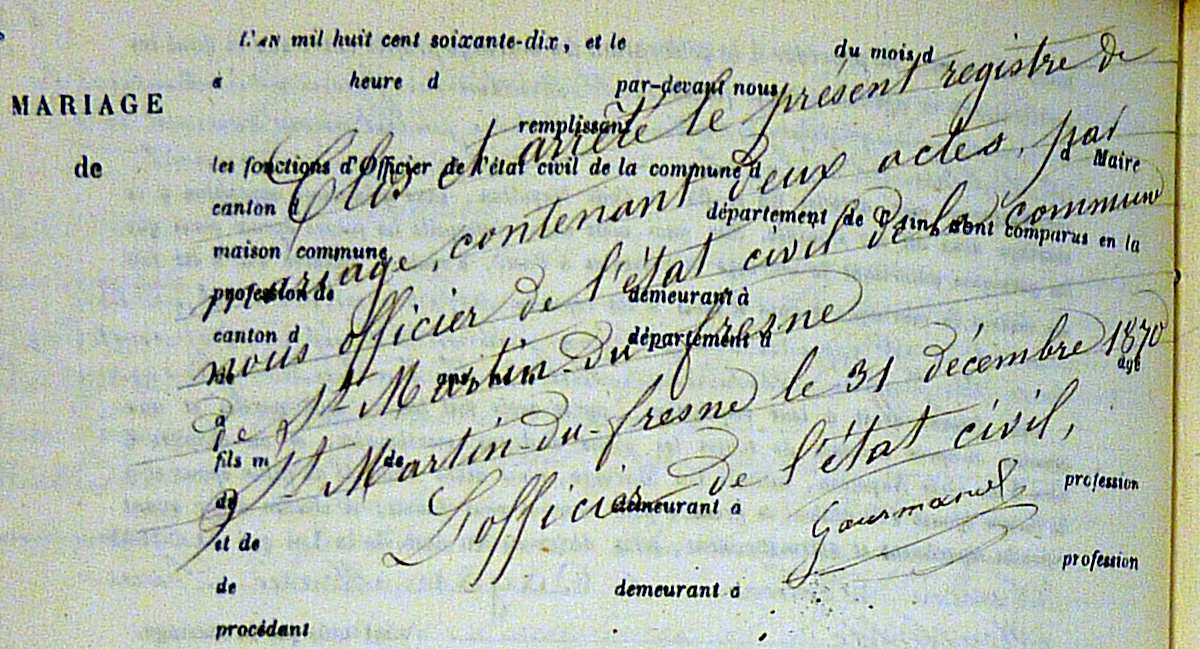 L'AN mil huit cent soixante-dix, et le du mois d
a heure d par-devant nous
MARIAGE
remplissant
de
les fonctions d'Officier de l'état civil de la commune d a Maire
canton d département de l'Ain sont comparus en la
maison commune
profession de demeurant à
canton d département d
né ans, né le âgé
a
fils m de
de demeurant a profession
et de profession
de demeurant a
procédant
Clos et arrêté le présent registre de
mariage, contenant deux actes, par
nous officier de l'état civil de la commune
de St Martin-du-fresne
St Martin-du-fresne le 31 décembre 1870
L'officier de l'état civil,